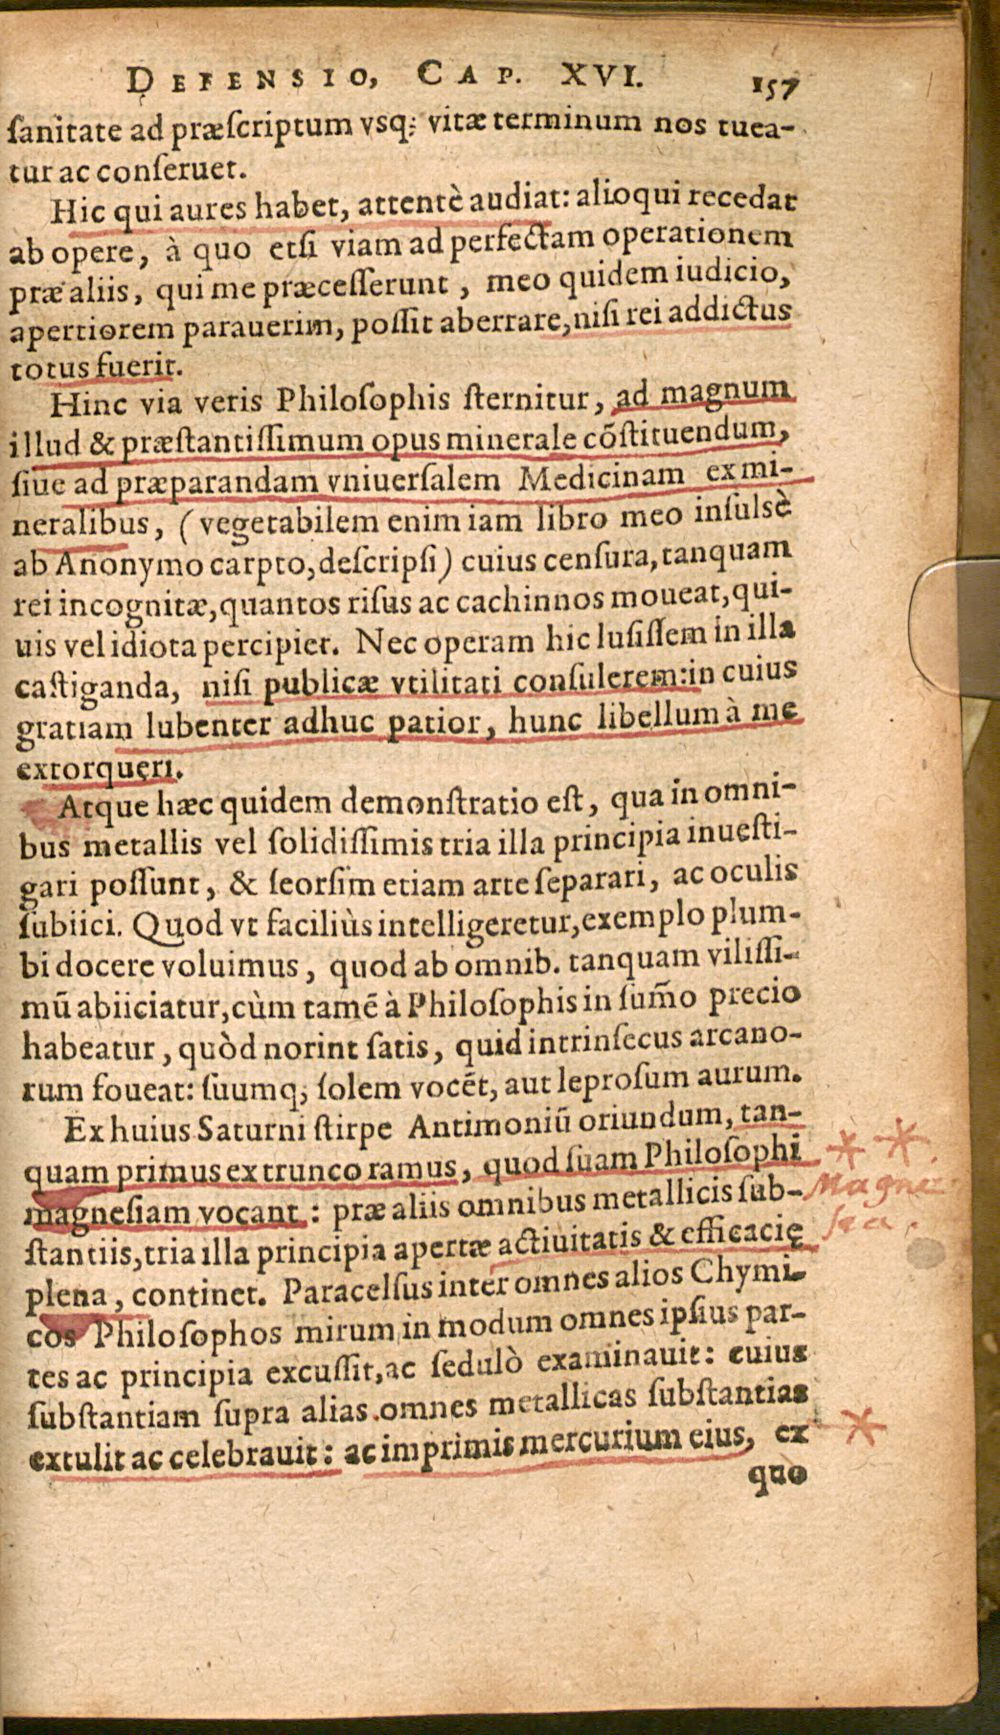 DEFENSIO, CAP. XVI. 157
ſanitate ad præſcriptum vsq; vitæ terminum nos tuea-
tur ac conſeruet.
Hic qui aures habet, attentè audiat: alioqui recedat
ab opere, à quo etſi viam ad perfectam operationem
præ aliis, qui me præceſſerunt, meo quidem iudicio,
apertiorem parauerim, poſſit aberrare, niſi rei addictus
totus fuerit.
Hinc via veris Philoſophis ſternitur, ad magnum
illud & præſtantiſſimum opus minerale cõſtituendum,
ſiue ad præparandam vniuerſalem Medicinam ex mi-
neralibus, (vegetabilem enim iam libro meo inſulsè
ab Anonymo carpto, deſcripſi) cuius cenſura, tanquam
rei incognitæ, quantos riſus ac cachinnos moueat, qui-
uis vel idiota percipiet. Nec operam hic luſiſſem in illa
caſtiganda, niſi publicæ vtilitati conſulerem: in cuius
gratiam lubenter adhuc patior, hunc libellum à me
extorqueri.
Atque hæc quidem demonſtratio eſt, qua in omni-
bus metallis vel ſolidiſſimis tria illa principia inueſti-
gari poſſunt, & ſeorſim etiam arte ſeparari, ac oculis
ſubiici. Quod vt faciliùs intelligeretur, exemplo plum-
bi docere voluimus, quod ab omnib. tanquam viliſſi-
mũ abiiciatur, cùm tamẽ à Philoſophis in ſum̃o precio
habeatur, quòd norint ſatis, quid intrinſecus arcano-
rum foueat: ſuumq; ſolem vocẽt, aut leproſum aurum.
Ex huius Saturni ſtirpe Antimoniũ oriundum, tan-
quam primus ex trunco ramus, quod ſuam Philoſophi
magneſiam vocant: præ aliis omnibus metallicis ſub-
Magne
sia.
ſtantiis, tria illa principia apertæ actiuitatis & efficacię
plena, continet. Paracelſus inter omnes alios Chymi-
cos Philoſophos mirum in modum omnes ipſius par-
tes ac principia excuſſit, ac ſedulò examinauit: cuius
ſubſtantiam ſupra alias omnes metallicas ſubſtantias
extulit ac celebrauit: ac imprimis mercurium eius, ex
quo